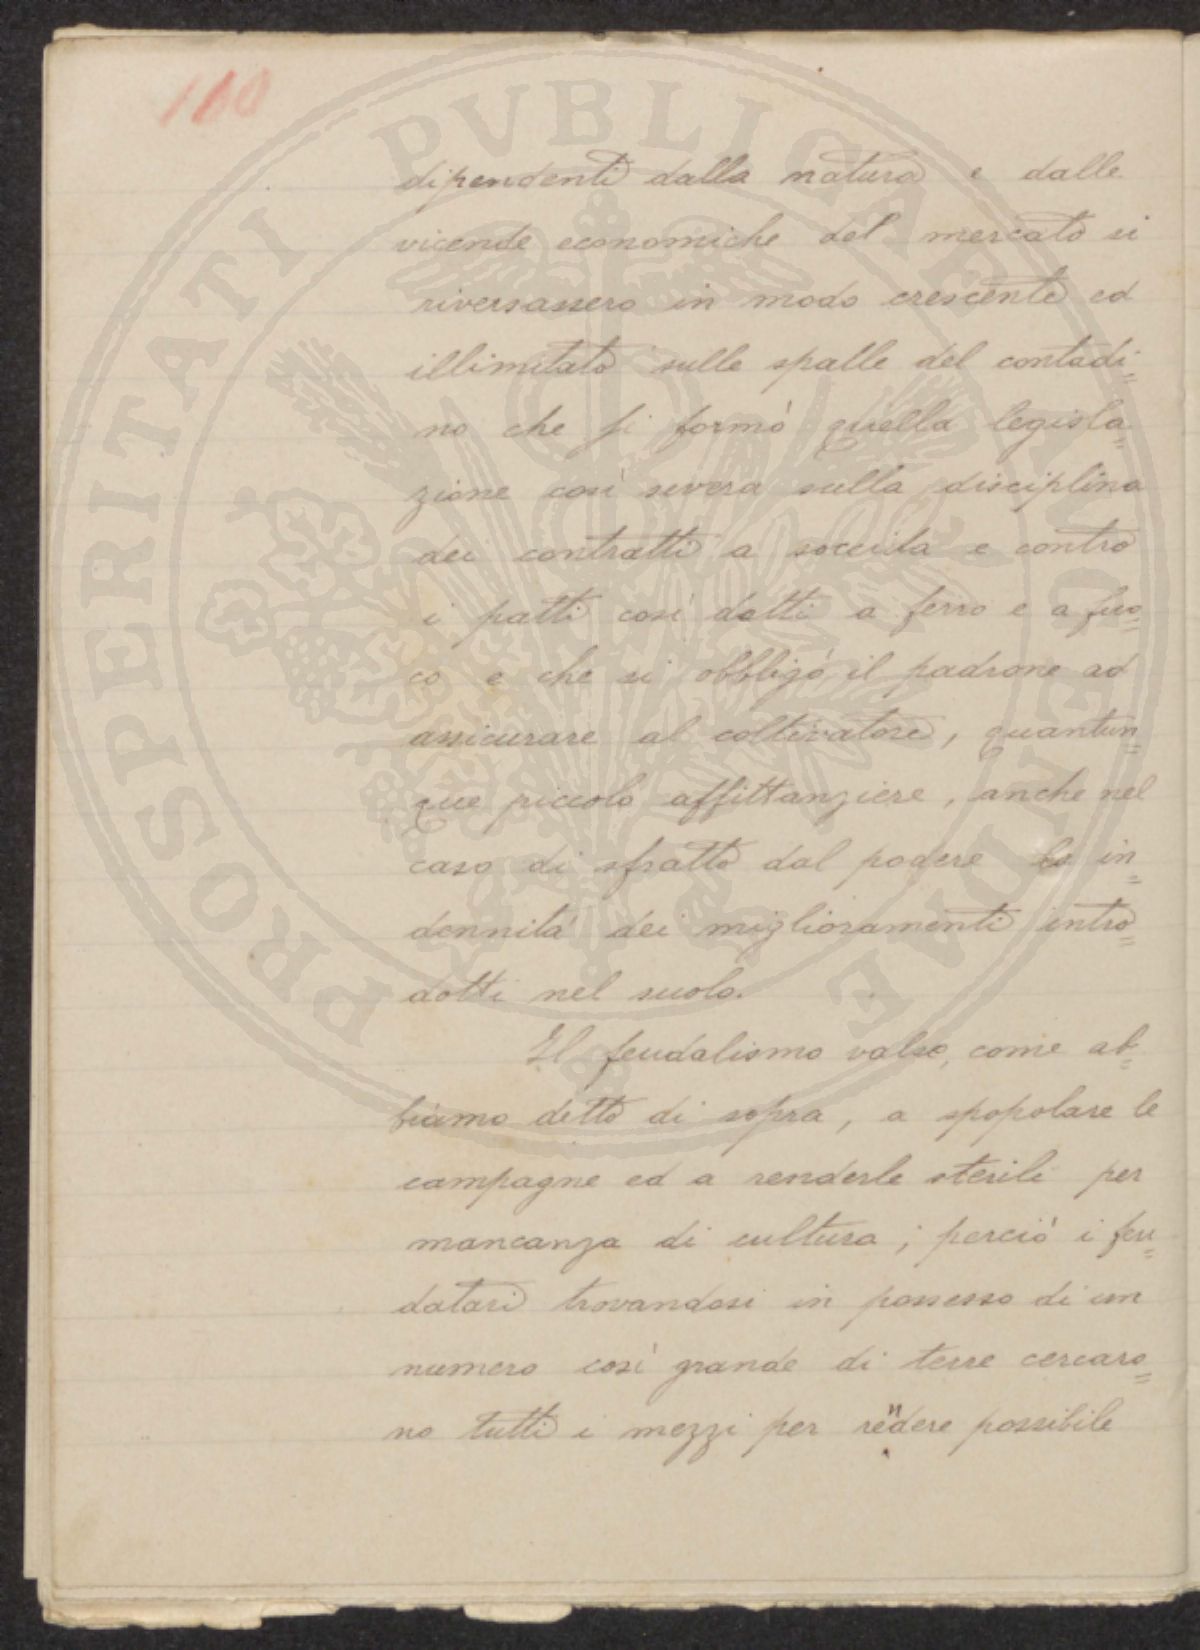 160
dipendenti dalla natura e dalle
vicende economiche del mercato si
riversassero in modo crescente ed
illimitato sulle spalle del contadi=
no che si formò quella legisla=
zione così severa sulla disciplina
dei contratti a soccida e contro
i patti così detti a ferro e a fuo=
co e che si obbligò il padrone ad
assicurare al coltivatore, quantun=
que piccolo affittanziere, anche nel
caso di sfratto dal podere la in=
dennità dei miglioramenti intro=
dotti nel suolo.
Il feudalismo valse, come ab=
biamo detto di sopra, a spopolare le
campagne ed a renderle sterili per
mancanza di cultura; perciò i feu=
datari trovandosi in possesso di un
numero così grande di terre cercaro=
no tutti i mezzi per rendere possibile
PVBLICAE FELICITATI
PROSPERITATI